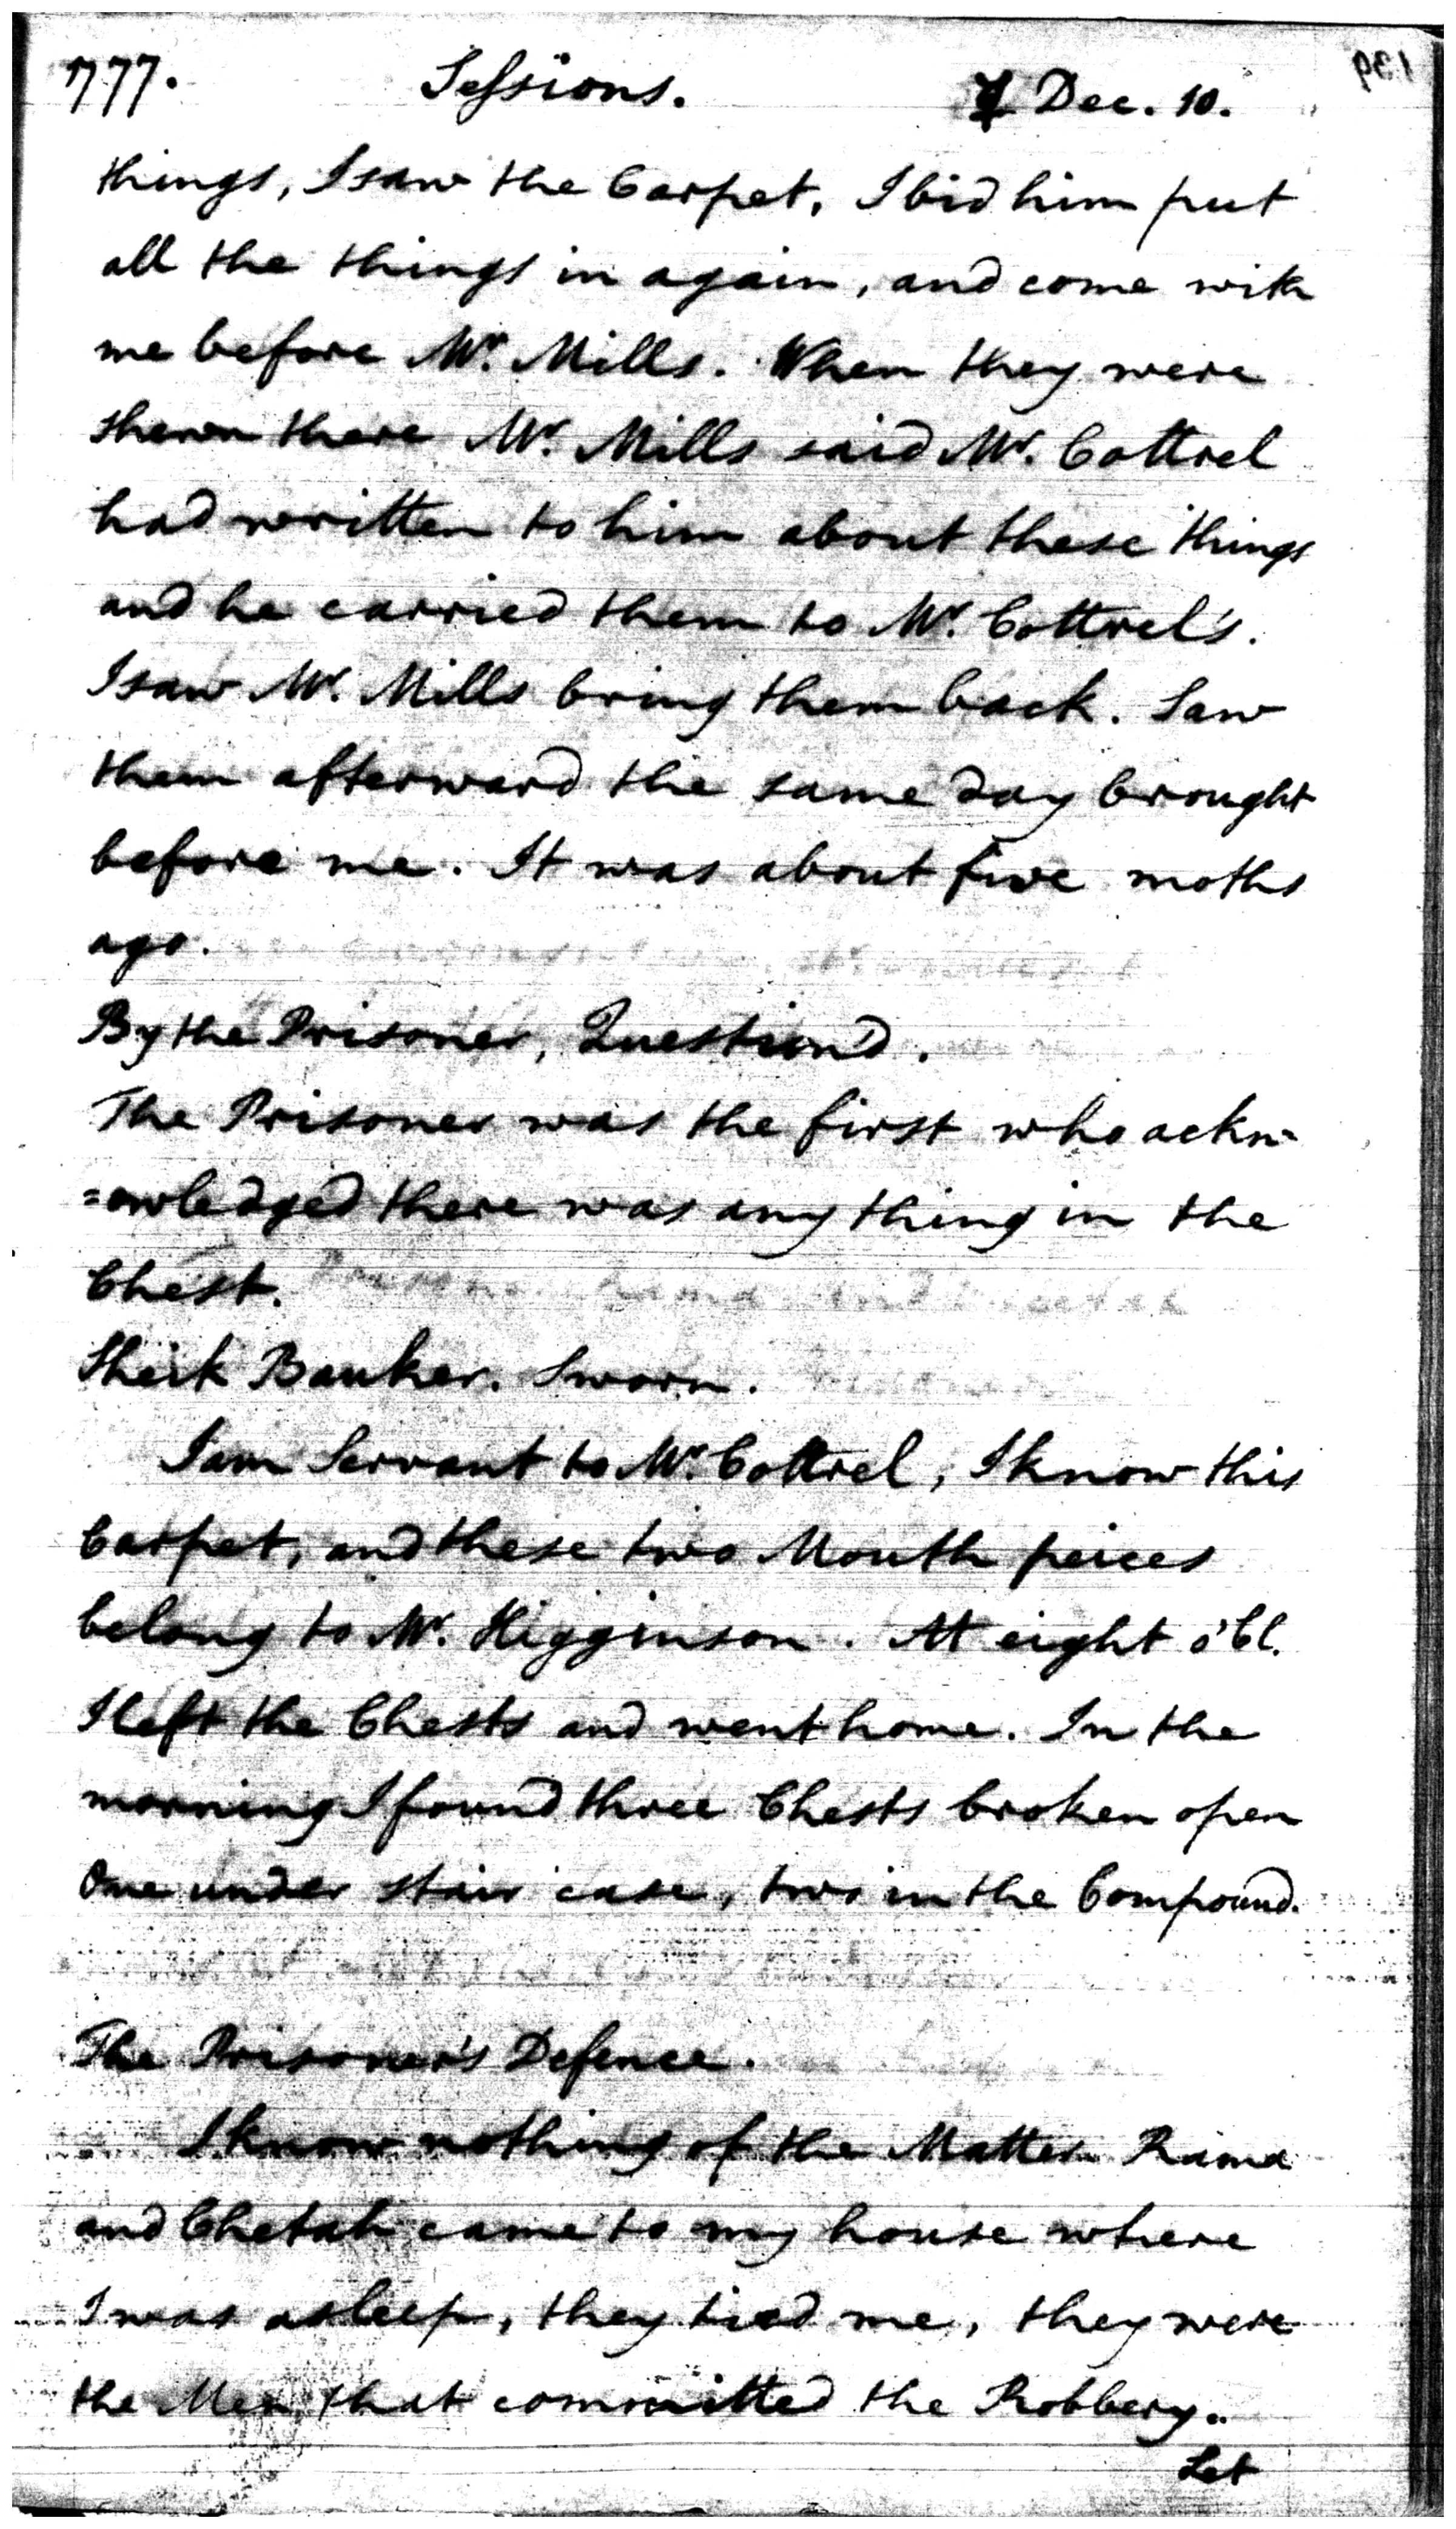 777. Sessions. ☿ Dec. 10.
things, I saw the Carpet, I bid him put
all the things in again, and come with
me before Mr. Mills. When they were
shewn there Mr. Mills said Mr. Cottrel
had written to him about these things
and he carried them to Mr. Cottrel's.
I saw Mr. Mills bring them back. Saw
them afterward the same day brought
before me. It was about five moths
ago.
By the Prisoner, Question'd.
The Prisoner was the first who ackn-
=owledged there was any thing in the
Chest.
Sheik Bauker. Sworn.
I am Servant to Mr. Cottrel, I know this
Carpet, and these two Mouth peices
belong to Mr. Higginson. At eight o'Cl.
I left the Chests and went home. In the
morning I found three Chests broken open
One under stair case, two in the Compound.
The Prisoner's Defence.
I know nothing of the Matter Rama
and Chetah came to my house where
I was asleep, they tied me, they were
the Men that committed the Robbery.
Let